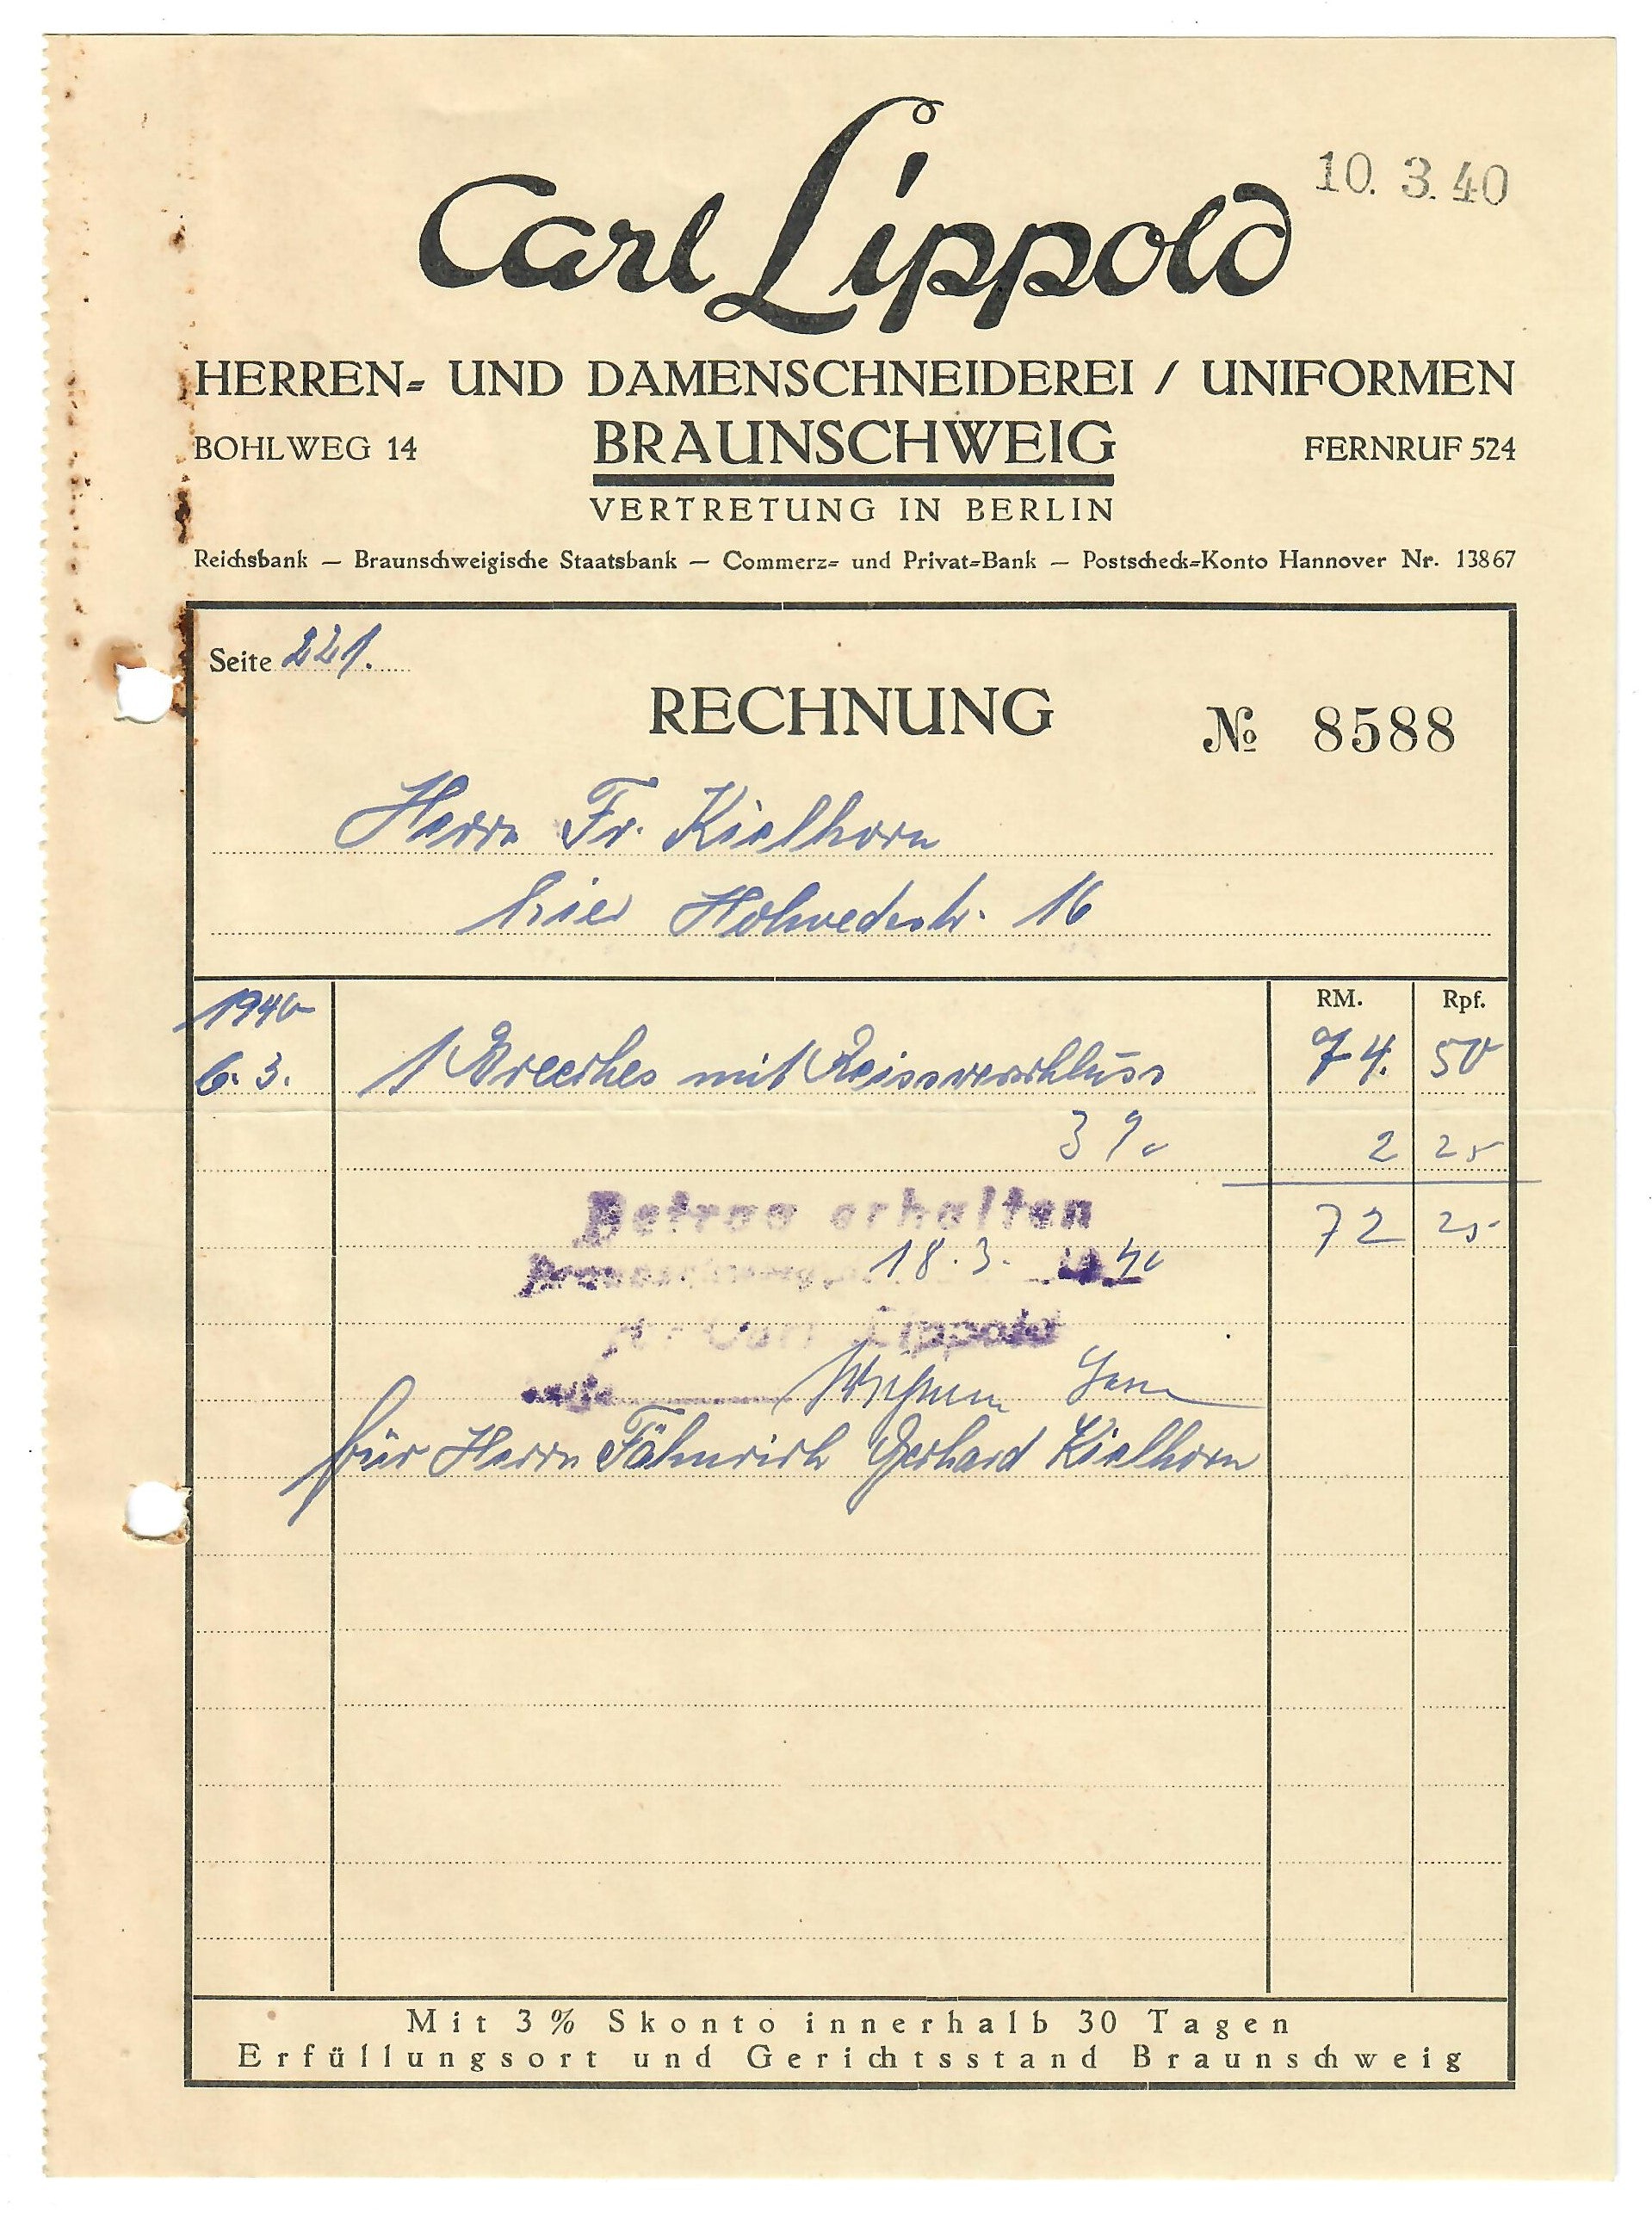 Carl Lippold
10. 3. 40
HERREN- UND DAMENSCHNEIDEREI / UNIFORMEN
BOHLWEG 14
BRAUNSCHWEIG
FERNRUF 524
VERTRETUNG IN BERLIN
Reichsbank — Braunschweigische Staatsbank — Commerz- und Privat-Bank — Postscheck-Konto Hannover Nr. 13867
Seite 221.
RECHNUNG
№ 8588
Herrn Fr. Kielhorn
hier Howedestr. 16
RM. Rpf.
1940
6. 3. 1 Breeches mit Reissverschluss 74. 50
3 % 2 25
72 25
Betrag erhalten
Braunschweig, 18. 3. 1940
Carl Lippold
für Herrn Fähnrich Gerhard Kielhorn
Mit 3 % Skonto innerhalb 30 Tagen
Erfüllungsort und Gerichtsstand Braunschweig